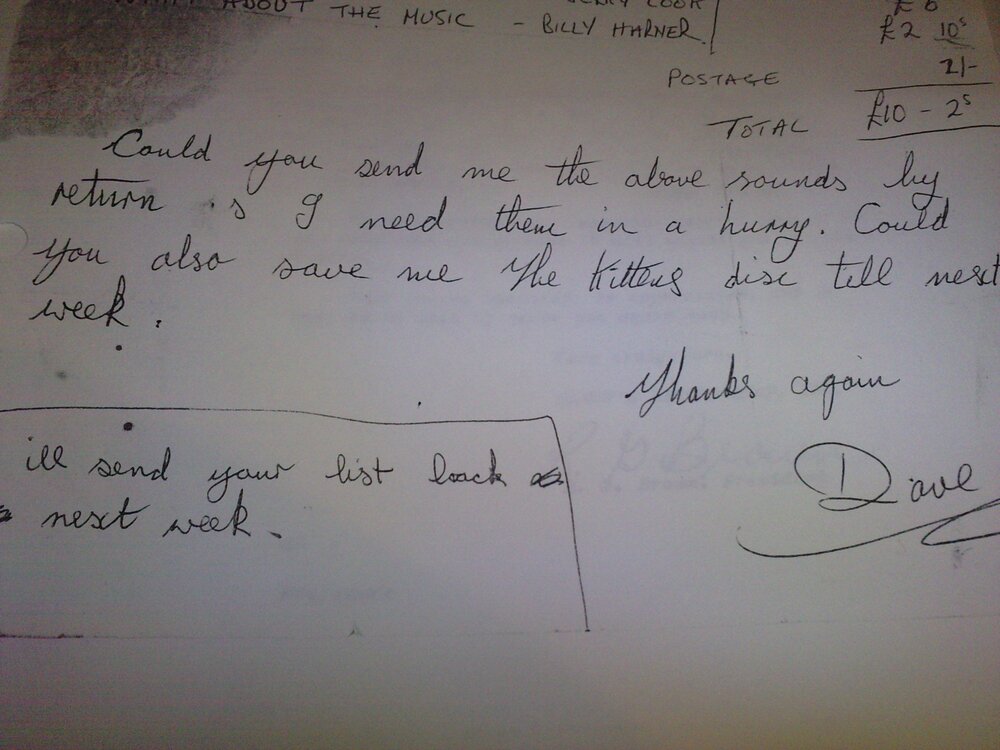 ABOUT THE MUSIC - BILLY HARNER
£6
£2 10s
POSTAGE 2/-
TOTAL £10 - 2s
Could you send me the above sounds by
return s I need them in a hurry. Could
you also save me the Kittens disc till next
week.
Thanks again
Dave
ill send your list back
next week.